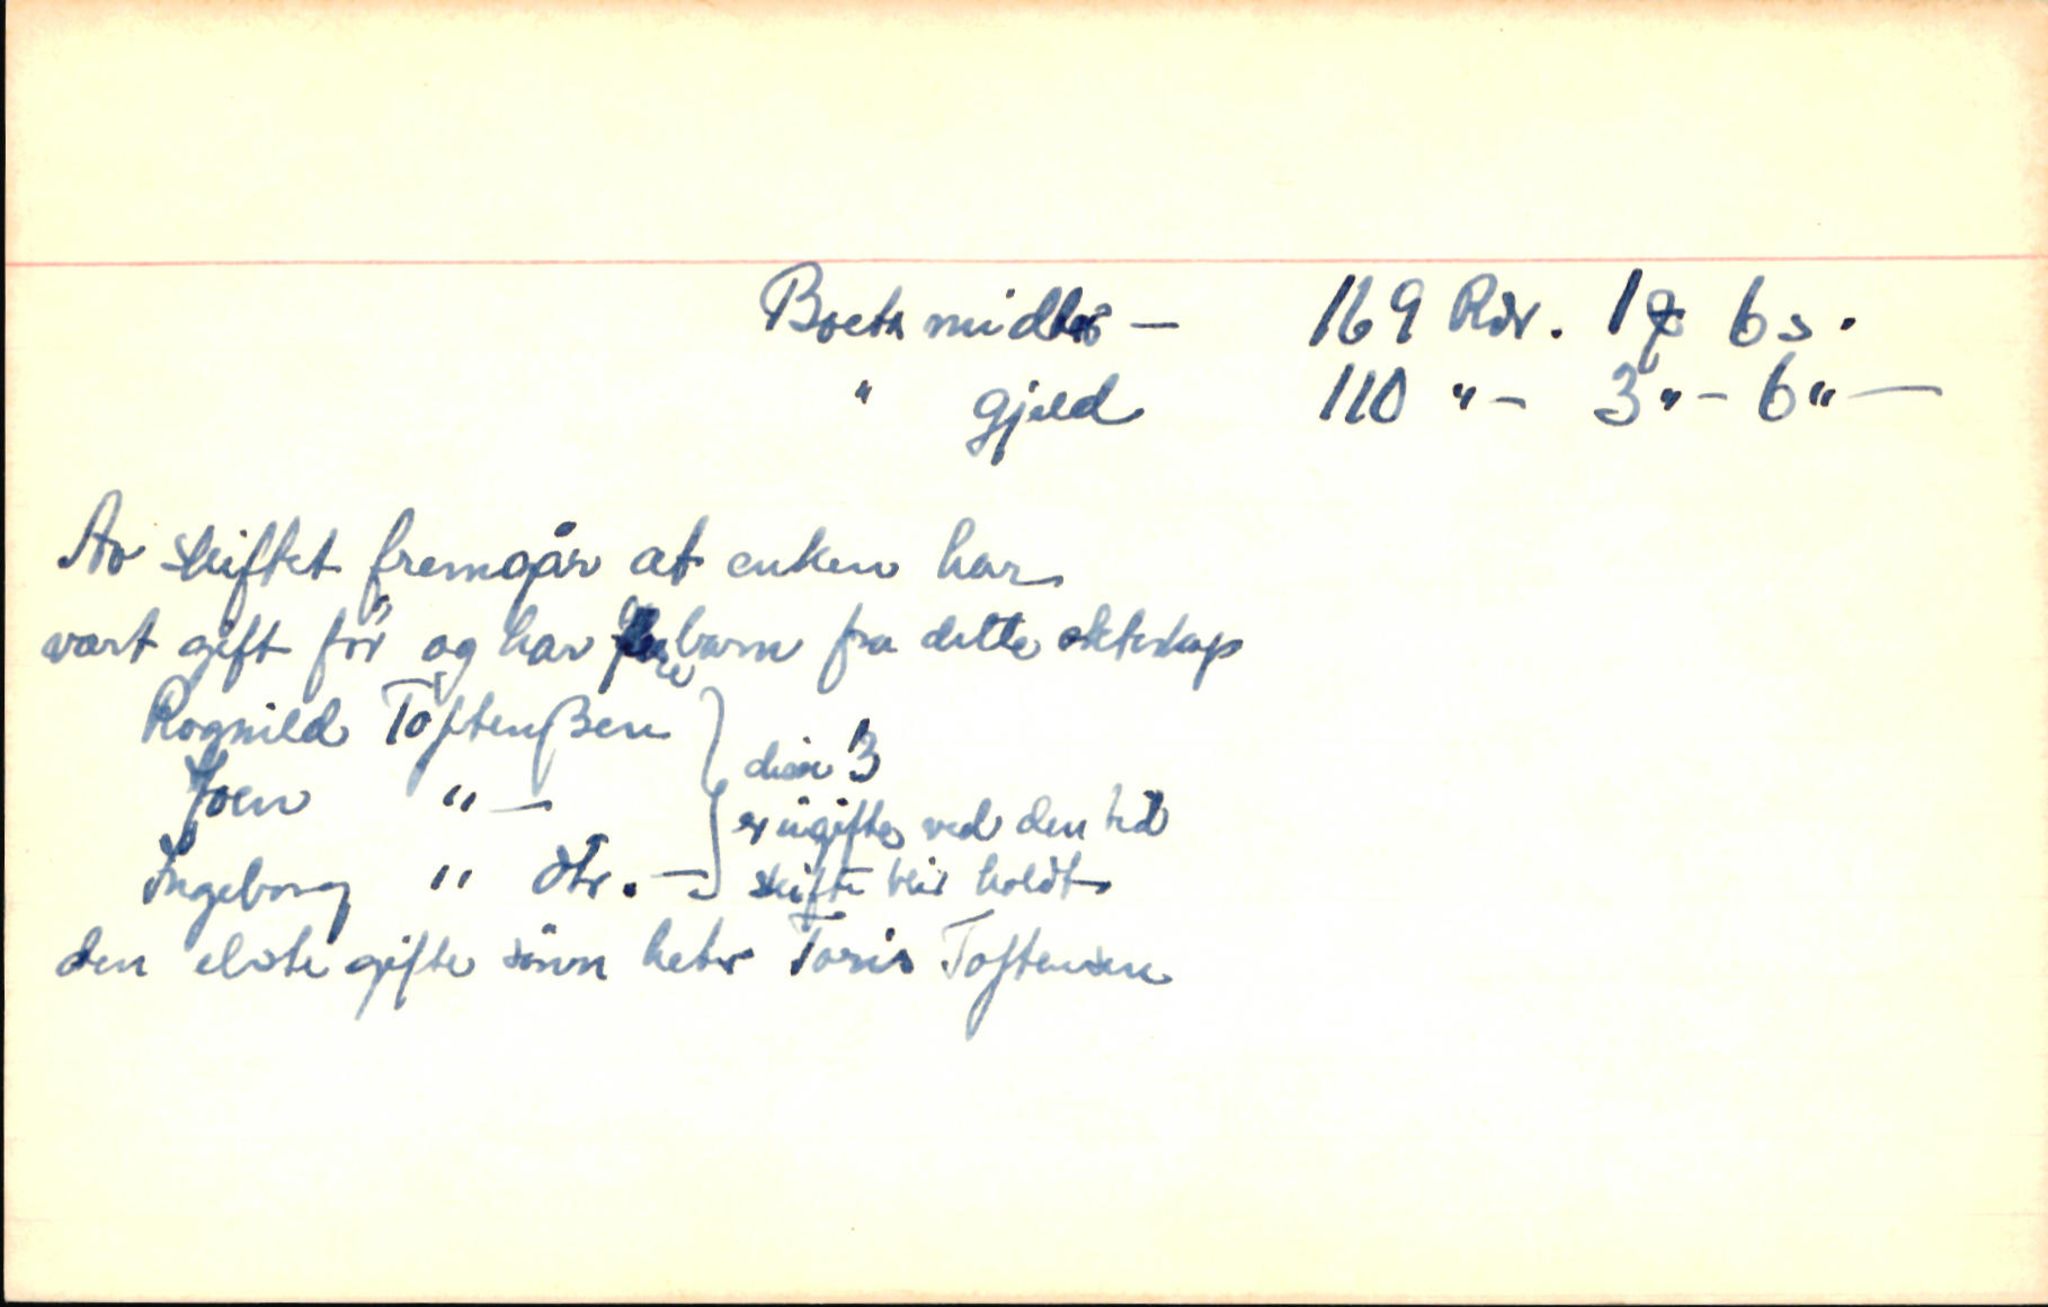 Boets midler – 169 Rdr. 1 ƶ 6 s.
" gjeld 110 " – 3 " – 6 " –
Av skiftet fremgår at enken har
vært gift før og har barn fra dette ekteskap
Rognild Toftenßen
Joen " –
Ingeborg " dtr. –
disse 3
er ugifte ved den tid
skifte blir holdt
den elste gifte sønn heter Toris Toftensen